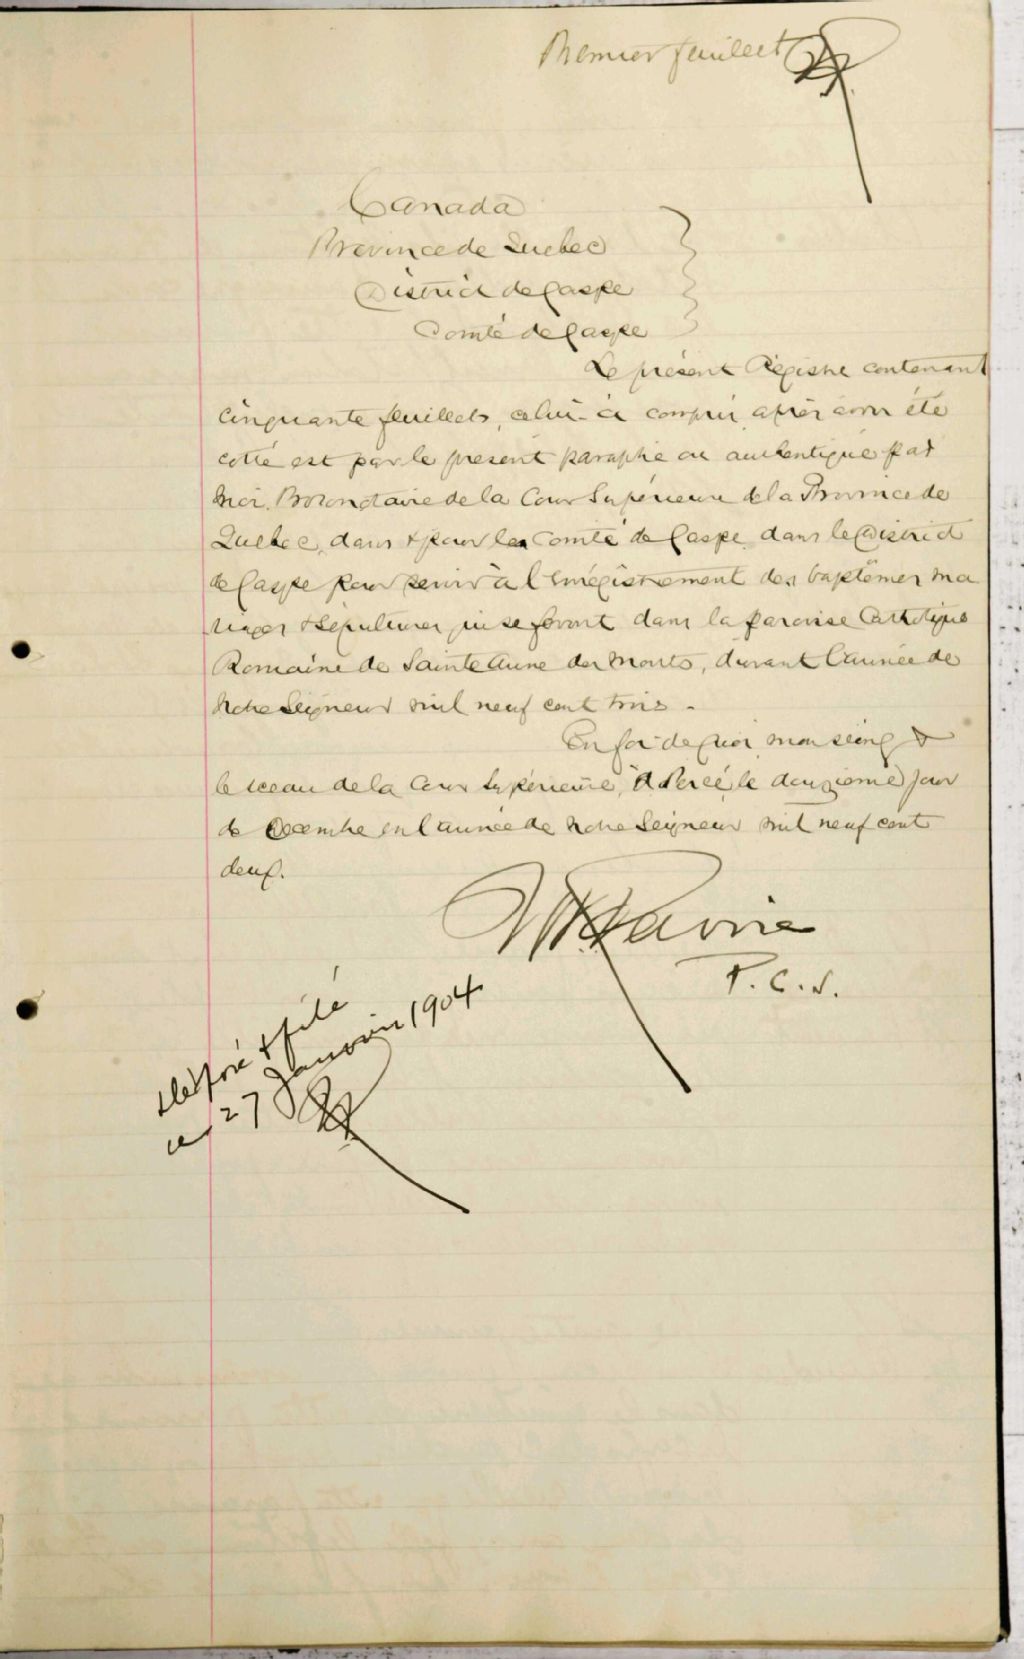 Premier feuillet
Canada
Province de Quebec
District de Gaspe
Comté de Gaspe
Le présent Régistre contenant
cinquante feuillets, celui-ci compris, après avoir été
cotté est par le present paraphé ou authentique par
moi, Protonotaire de la Cour Supérieure de la Province de
Quebec, dans & pour le Comté de Gaspe, dans le District
de Gaspe pour servir à l'Enrégistrement des baptêmes ma
riages & Sépultures qui se feront dans la paroisse Catholique
Romaine de Sainte Anne des Monts, durant l'année de
Notre Seigneur mil neuf cent trois.
En foi de quoi, mon seing &
le sceau de la Cour Supérieure, à Percé, le douzieme jour
de Decembre en l'année de Notre Seigneur mil neuf cent
deux.
Lavoie
P.C.S.
déposé & filé
ce 27 Janvier 1904